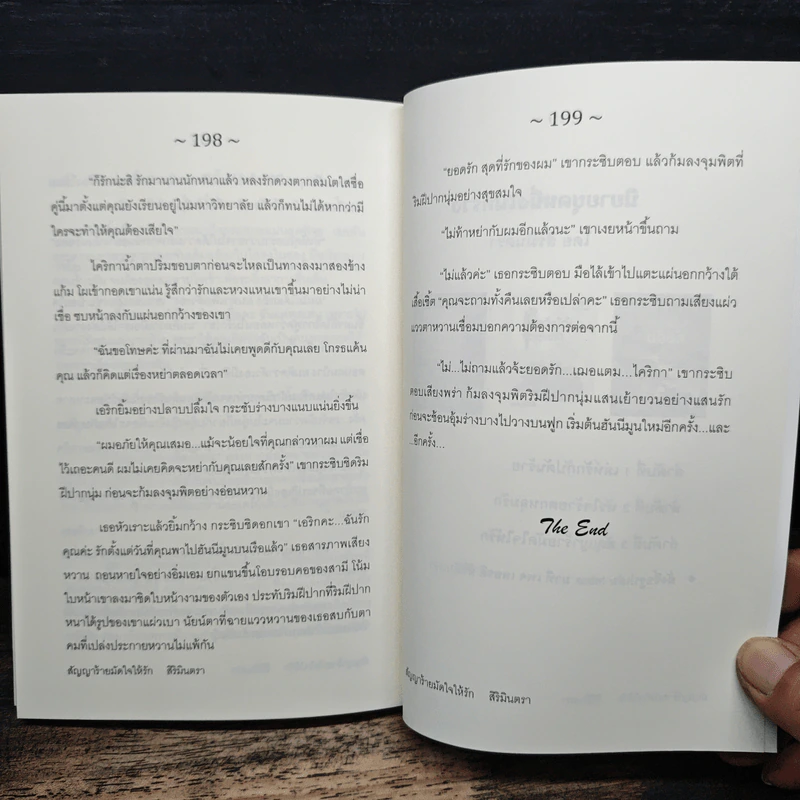 ~ 198 ~
“ก็รักน่ะสิ รักมานานนักหนาแล้ว หลงรักดวงตากลมโตใสซื่อ
คู่นี้มาตั้งแต่คุณยังเรียนอยู่ในมหาวิทยาลัย แล้วก็ทนไม่ได้หากว่ามี
ใครจะทำให้คุณต้องเสียใจ”
ไคริกาน้ำตาปริ่มขอบตาก่อนจะไหลเป็นทางลงมาสองข้าง
แก้ม โผเข้ากอดเขาแน่น รู้สึกว่ารักและหวงแหนเขาขึ้นมาอย่างไม่น่า
เชื่อ ซบหน้าลงกับแผ่นอกกว้างของเขา
“ฉันขอโทษค่ะ ที่ผ่านมาฉันไม่เคยพูดดีกับคุณเลย โกรธแค้น
คุณ แล้วก็คิดแต่เรื่องหย่าตลอดเวลา”
เอริกยิ้มอย่างปลาบปลื้มใจ กระชับร่างบางแนบแน่นยิ่งขึ้น
“ผมอภัยให้คุณเสมอ...แม้จะน้อยใจที่คุณกล่าวหาผม แต่เชื่อ
ไว้เถอะคนดี ผมไม่เคยคิดจะหย่ากับคุณเลยสักครั้ง” เขากระซิบชิดริม
ฝีปากนุ่ม ก่อนจะก้มลงจุมพิตอย่างอ่อนหวาน
เธอหัวเราะแล้วยิ้มกว้าง กระซิบชิดอกเขา “เอริกคะ...ฉันรัก
คุณค่ะ รักตั้งแต่วันที่คุณพาไปฮันนีมูนบนเรือแล้ว” เธอสารภาพเสียง
หวาน ถอนหายใจอย่างอิ่มเอม ยกแขนขึ้นโอบรอบคอของสามี โน้ม
ใบหน้าเขาลงมาชิดใบหน้างามของตัวเอง ประทับริมฝีปากที่ริมฝีปาก
หนาได้รูปของเขาแผ่วเบา นัยน์ตาที่ฉายแววหวานของเธอสบกับตา
คมที่เปล่งประกายหวานไม่แพ้กัน
สัญญาร้ายมัดใจให้รัก สิริมินตรา
~ 199 ~
“ยอดรัก สุดที่รักของผม” เขากระซิบตอบ แล้วก้มลงจุมพิตที่
ริมฝีปากนุ่มอย่างสุขสมใจ
“ไม่ท้าหย่ากับผมอีกแล้วนะ” เขาเงยหน้าขึ้นถาม
“ไม่แล้วค่ะ” เธอกระซิบตอบ มือไล้เข้าไปแตะแผ่นอกกว้างใต้
เสื้อเชิ้ต “คุณจะถามทั้งคืนเลยหรือเปล่าคะ” เธอกระซิบถามเสียงแผ่ว
แววตาหวานเชื่อมบอกความต้องการต่อจากนี้
“ไม่...ไม่ถามแล้วจ้ะยอดรัก...เฌอแตม...ไคริกา” เขากระซิบ
ตอบเสียงพร่า ก้มลงจุมพิตริมฝีปากนุ่มแสนเย้ายวนอย่างแสนรัก
ก่อนจะช้อนอุ้มร่างบางไปวางบนฟูก เริ่มต้นฮันนีมูนใหม่อีกครั้ง...และ
..อีกครั้ง...
The End
สัญญาร้ายมัดใจให้รัก สิริมินตรา